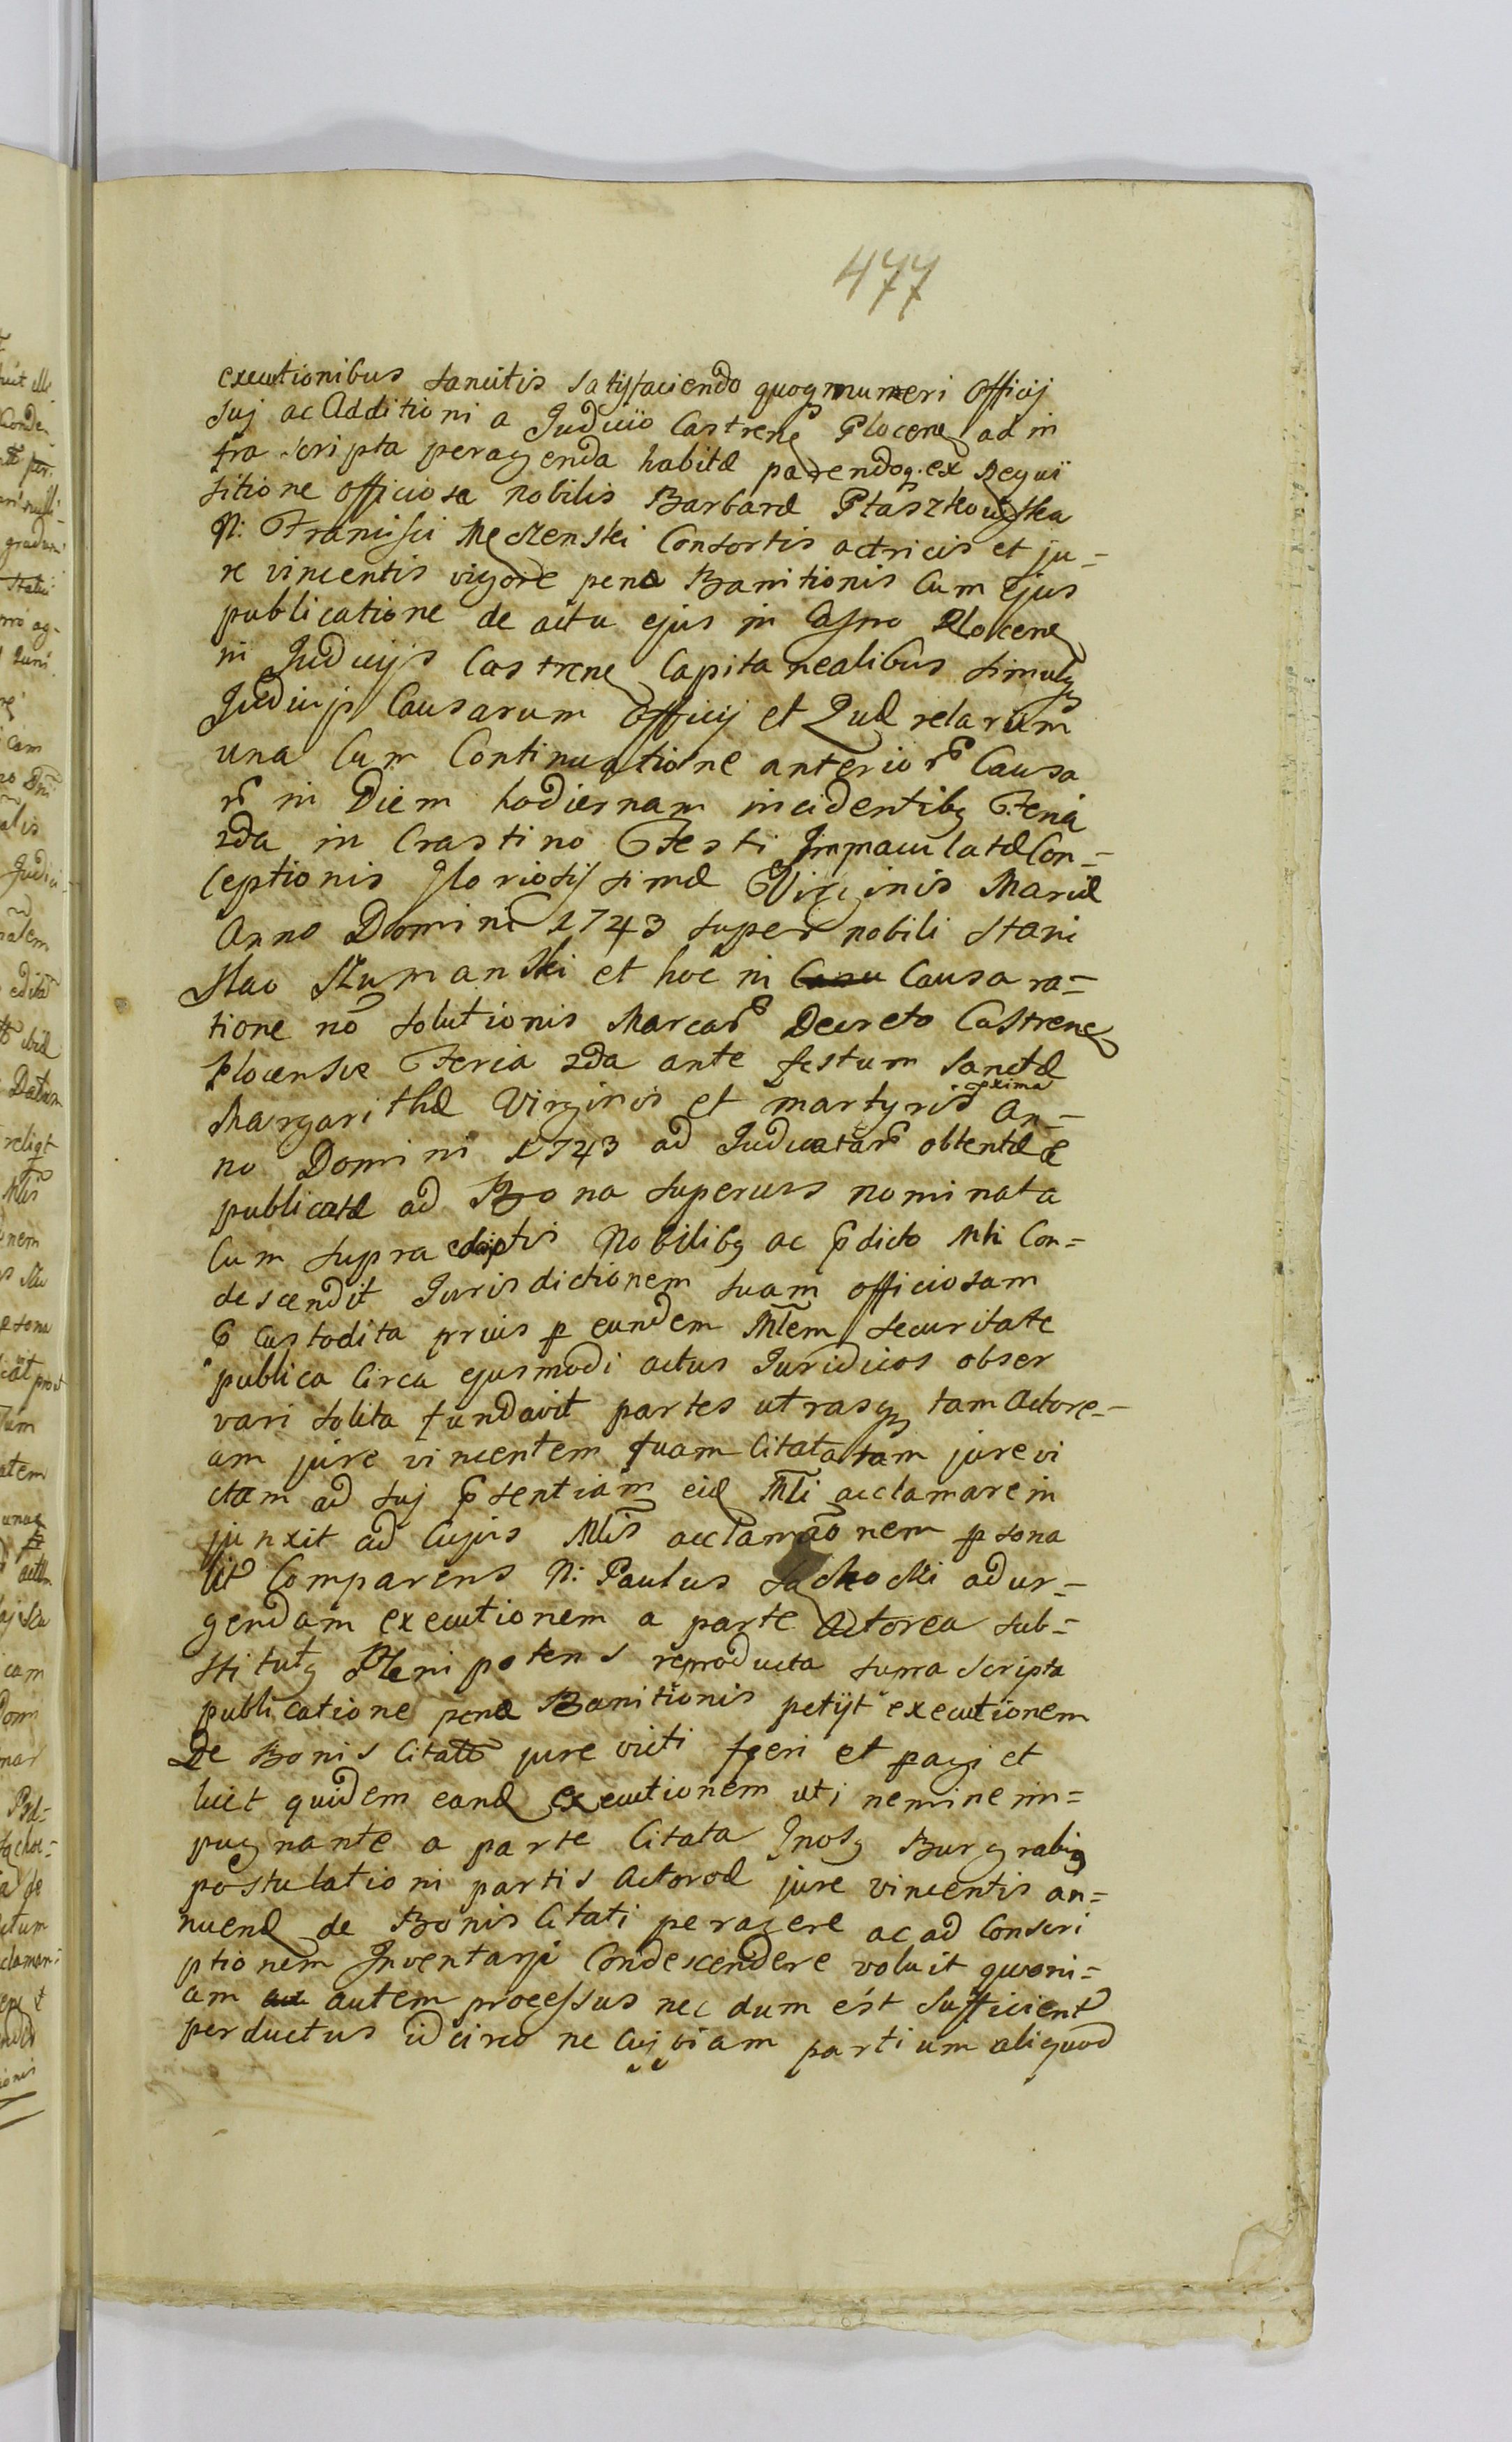 477
executionibus sancitis satisfaciendo quoq muneri officij
suj ac Additioni a Judicio Castrens Plocens ad in
fra scripta peragenda habitæ parendoq. ex requi
sitione officiosa nobilis Barbaræ Ptaszkowska
N: Francisci Męczenski Consortis actricis et ju=
re vincentis vigore penæ Banitionis Cum Ejus
publicatione de actu ejus in Castro Plocens
in Judicijs Castrens Capitanealibus simulq
Judicijs Causarum officij et Quærelarum
una Cum Continuatione anteriorʳ Causa
rʳ in Diem hodiernam incidentibꝫ Feria
2da in Crastino Festi Immaculatæ Con=
ceptionis Gloriosissimæ Virginis Mariæ
Anno Domini 1743 super nobili Stani
slao Szumanski et hoc in Causa ra=
tione nõ solutionis Marcarʳ Decreto Castrens
Plocensie Feria 2da ante festum Sanctæ
Margarithæ Virginis et martyris pxima An=
no Domini 1743 ad Judicatarʳ obtentæ &
publicatæ ad Bona superius nominata
Cum supra Nobilibꝫ ac pdicto Mli Con=
descendit Jurisdictionem suam officiosam
& Custodita prius p eundem Mlem securitate
publica Circa ejusmodi actus Juridicos obser
vari solita fundavit partes utrasq tam Actore=
am jure vincentem quam Citatam jure vi
ctam ad suj psentiam eid Mli acclamare in
junxit ad Cujus Mlis acclamãonem psona
lit Comparens N: Paulus Sączkocki ad ur=
gendam executionem a parte Actorea sub=
stitutꝫ Plenipotens reproducta supra scripta
publicatione penæ Banitionis petijt executionem
De Bonis Citati jure victi fieri et pagi et
licet quidem eand executionem uti nemine im=
pugnante a parte Citata Gnosꝫ Burgrabiꝫ
postulationi partis Actoreæ jure vincentis an=
nuend de Bonis Citati peragere ac ad Conscri
ptionem Inventarji Condescendere voluit quoni=
am autem processus nec dum est sufficient
perductus idcirco ne Cujviam partium aliquod